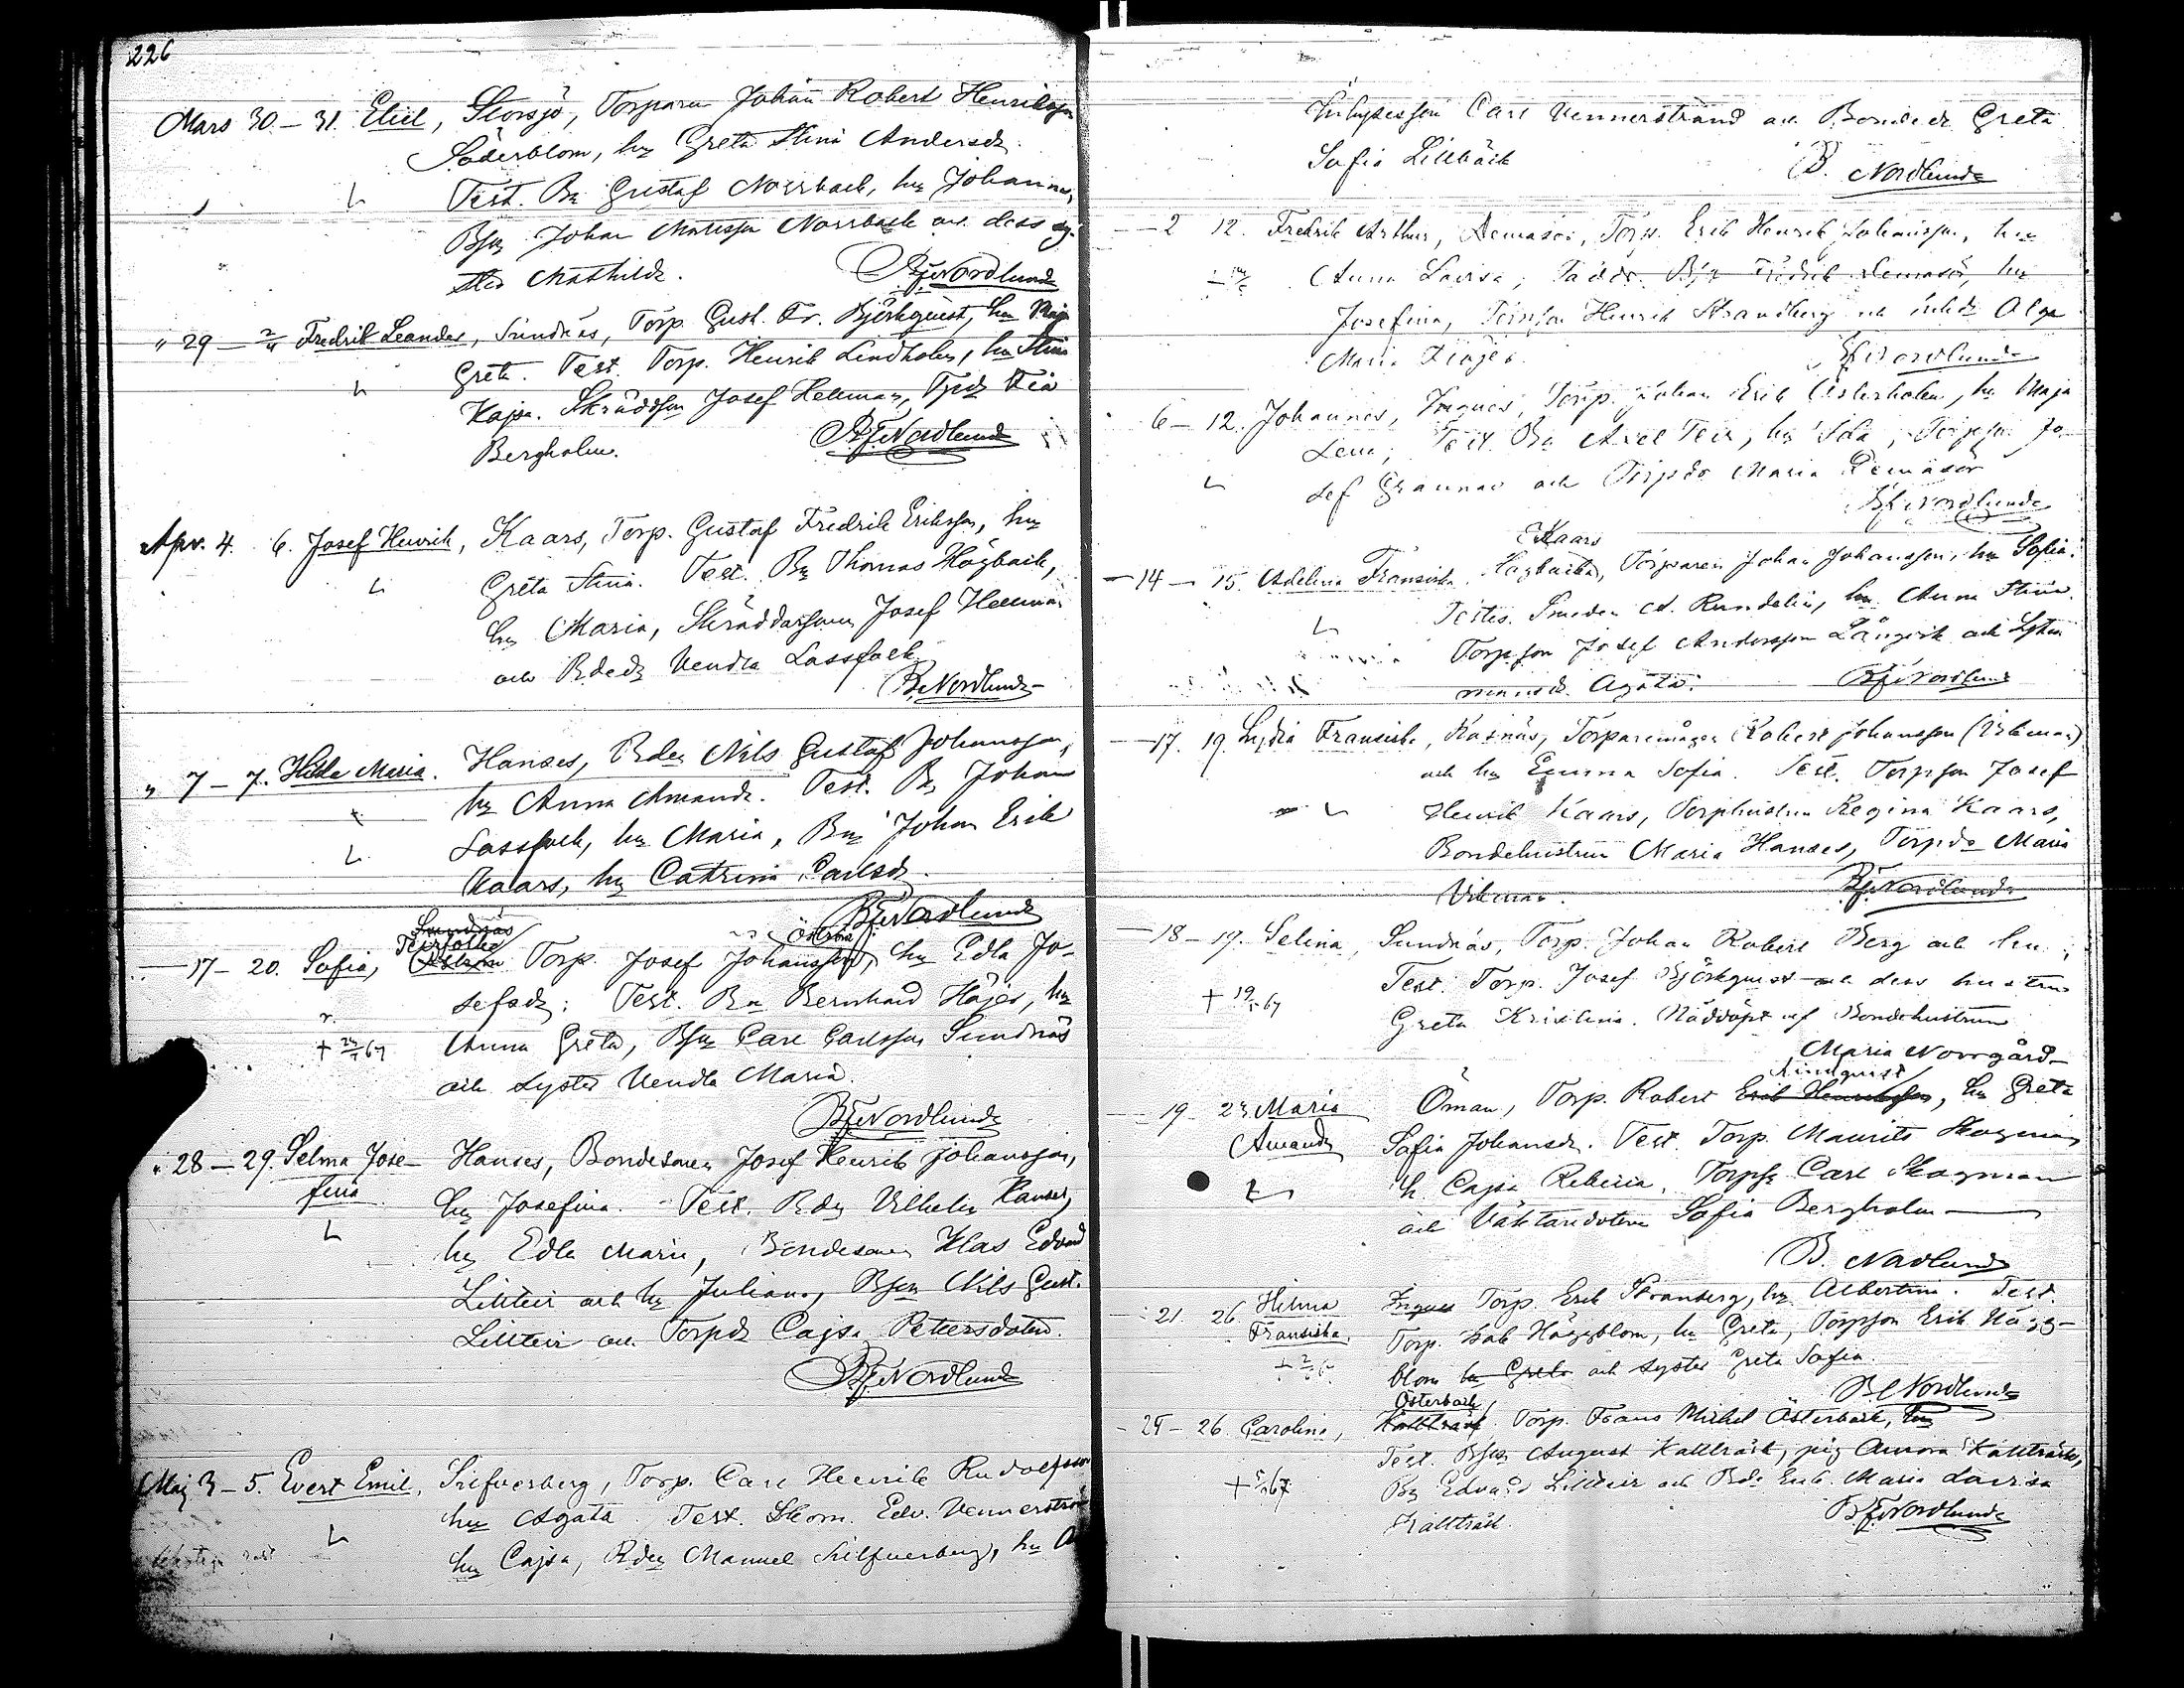 226
Mars 30 – 31. Eliel, Storsjö, Torparen Johan Robert Henriksson
Söderblom, hu Greta Stina Andersdr.
Test. Bn Gustaf Norrback, hu Johanna,
Bsn Johan Mattsson Norrback och dess sy-
ster Mathilda. BfNordlund
" 29 – 2/4 Fredrik Leander, Sundnäs, Torp. Gust. Fr. Björkqvist, hu Maja
Greta. Test. Torp. Henrik Lindholm, hu Stina
Kajsa. Skräddson Josef Hellman, Tpdr Fia
Bergholm. BfNordlund
Apr. 4. 6. Josef Henrik, Kaars, Torp. Gustaf Fredrik Eriksson, hu
Greta Stina. Test. Bn Thomas Högback,
hu Maria, Skräddarsonen Josef Hellman
och Bdedr Vendla Lassfolk
BfNordlund
" 7 – 7. Hilda Maria. Hanses, Bden Nils Gustaf Johansson,
hu Anna Amanda. Test. Bn Johan
Lassfolk, hu Maria, Bn Johan Erik
Kaars, hu Catrina Carlsdr.
BfNordlund
Sundnäs
Teirfolke Östman
— 17 – 20. Sofia, Torp. Josef Johansson, hu Edla Jo-
sefsdr: Test. Bn Bernhard Häjer, hu
Anna Greta, Bsn Carl Carlsson Sundnäs
+ 67
och syster Vendla Maria.
BfNordlund
" 28 – 29. Selma Jose- Hanses, Bondesonen Josef Henrik Johansson,
fina hu Josefina. Test. Bdn Vilhelm Hanses,
hu Edla Maria, Bondesonen Klas Edvard
Lillteir och hu Juliana, Bsn Nils Gust.
Lillteir och Torpdr Cajsa Pettersdotter.
BfNordlund
Maj 3 – 5. Evert Emil, Silfverberg, Torp. Carl Henrik Rudolfsson
hu Agata. Test. Skom. Edv. Vennerström
hu Cajsa, Bden Manuel Silfverberg, hu
Carl Vennerstrand och Bondedr Greta
Sofia Lillbäck B. Nordlund
— 2 12. Fredrik Arthur, Remasör, Torp. Erik Henrik Johansson, hu
Anna Lovisa, Faddr. Bsn Fredrik Remasör, hu
Josefina, Torpson Henrik Strandberg och Olga
Maria Häjer. BfNordlund
6 – 12. Johannes, Ingves, Torp. Johan Erik Österholm, hu Maja
Lena, Test. Bn Axel Teir, hu Ida, Torpson Jo-
sef Grannas och Torpdr Maria Remasör
BfNordlund
Kaars
— 14 – 15. Adelina Fransiska, Högbacka, Torparen Johan Johansson, hu Sofia.
Testes. Smeden A. Rundelin, hu Anna Stina.
Torpson Josef Andersson Långvik och
Agata. BfNordlund
— 17. 19. Lydia Fransiska, Kasnäs, Torparemågen Robert Johansson (Vikman)
och hu Emma Sofia. Test. Torpson Josef
Henrik Kaars, Torphustrun Regina Kaars,
Bondehustrun Maria Hanses, Torpdr Maria
Vikman. BfNordlund
— 18 – 19. Selina, Sundnäs, Torp. Johan Robert Berg och hu ;
Test. Torp. Josef Björkqvist och dess hustru
+ 19/5 67
Greta Kristina. Nöddöpt af Bondehustrun
Maria Norrgård
Lindqvist
— 19 – 23. Maria Öman, Torp. Robert Erik Henriksson, hu Greta
Amanda Sofia Johansdr. Test. Torp. Maurits Skogman
h. Cajsa Rebecca, Torps Carl Skogman
och Väktaredottern Sofia Bergholm —
B. Nordlund
21. 26. Hilma Ingves Torp. Erik Stranberg, hu Albertina. Test.
Fransiska, Torp. Isak Häggblom, hu Greta, Torpson Erik Hägg-
blom hu Greta och syster Greta Sofia.
BfNordlund
Österback
– 25 – 26. Carolina, Kallträsk, Torp. Frans Mickel Österback, hu
Test. Bsn August Kallträsk, pig Aurora Kallträsk,
+ 67
Bn Edvard Lillteir och Bde Enk. Maria Lovisa
Kallträsk. BfNordlund